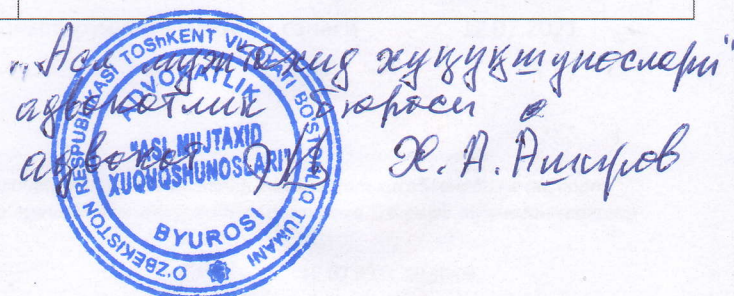 „Асл мужтаҳид ҳуқуқшунослари"
адвокатлик бюроси
адвокат Х. А. Аширов
O'ZBEKISTON RESPUBLIKASI TOShKENT VILOYATI BO'STONLIQ TUMANI
ADVOKATLIK
"ASL MUJTAXID
XUQUQSHUNOSLARI"
BYUROSI